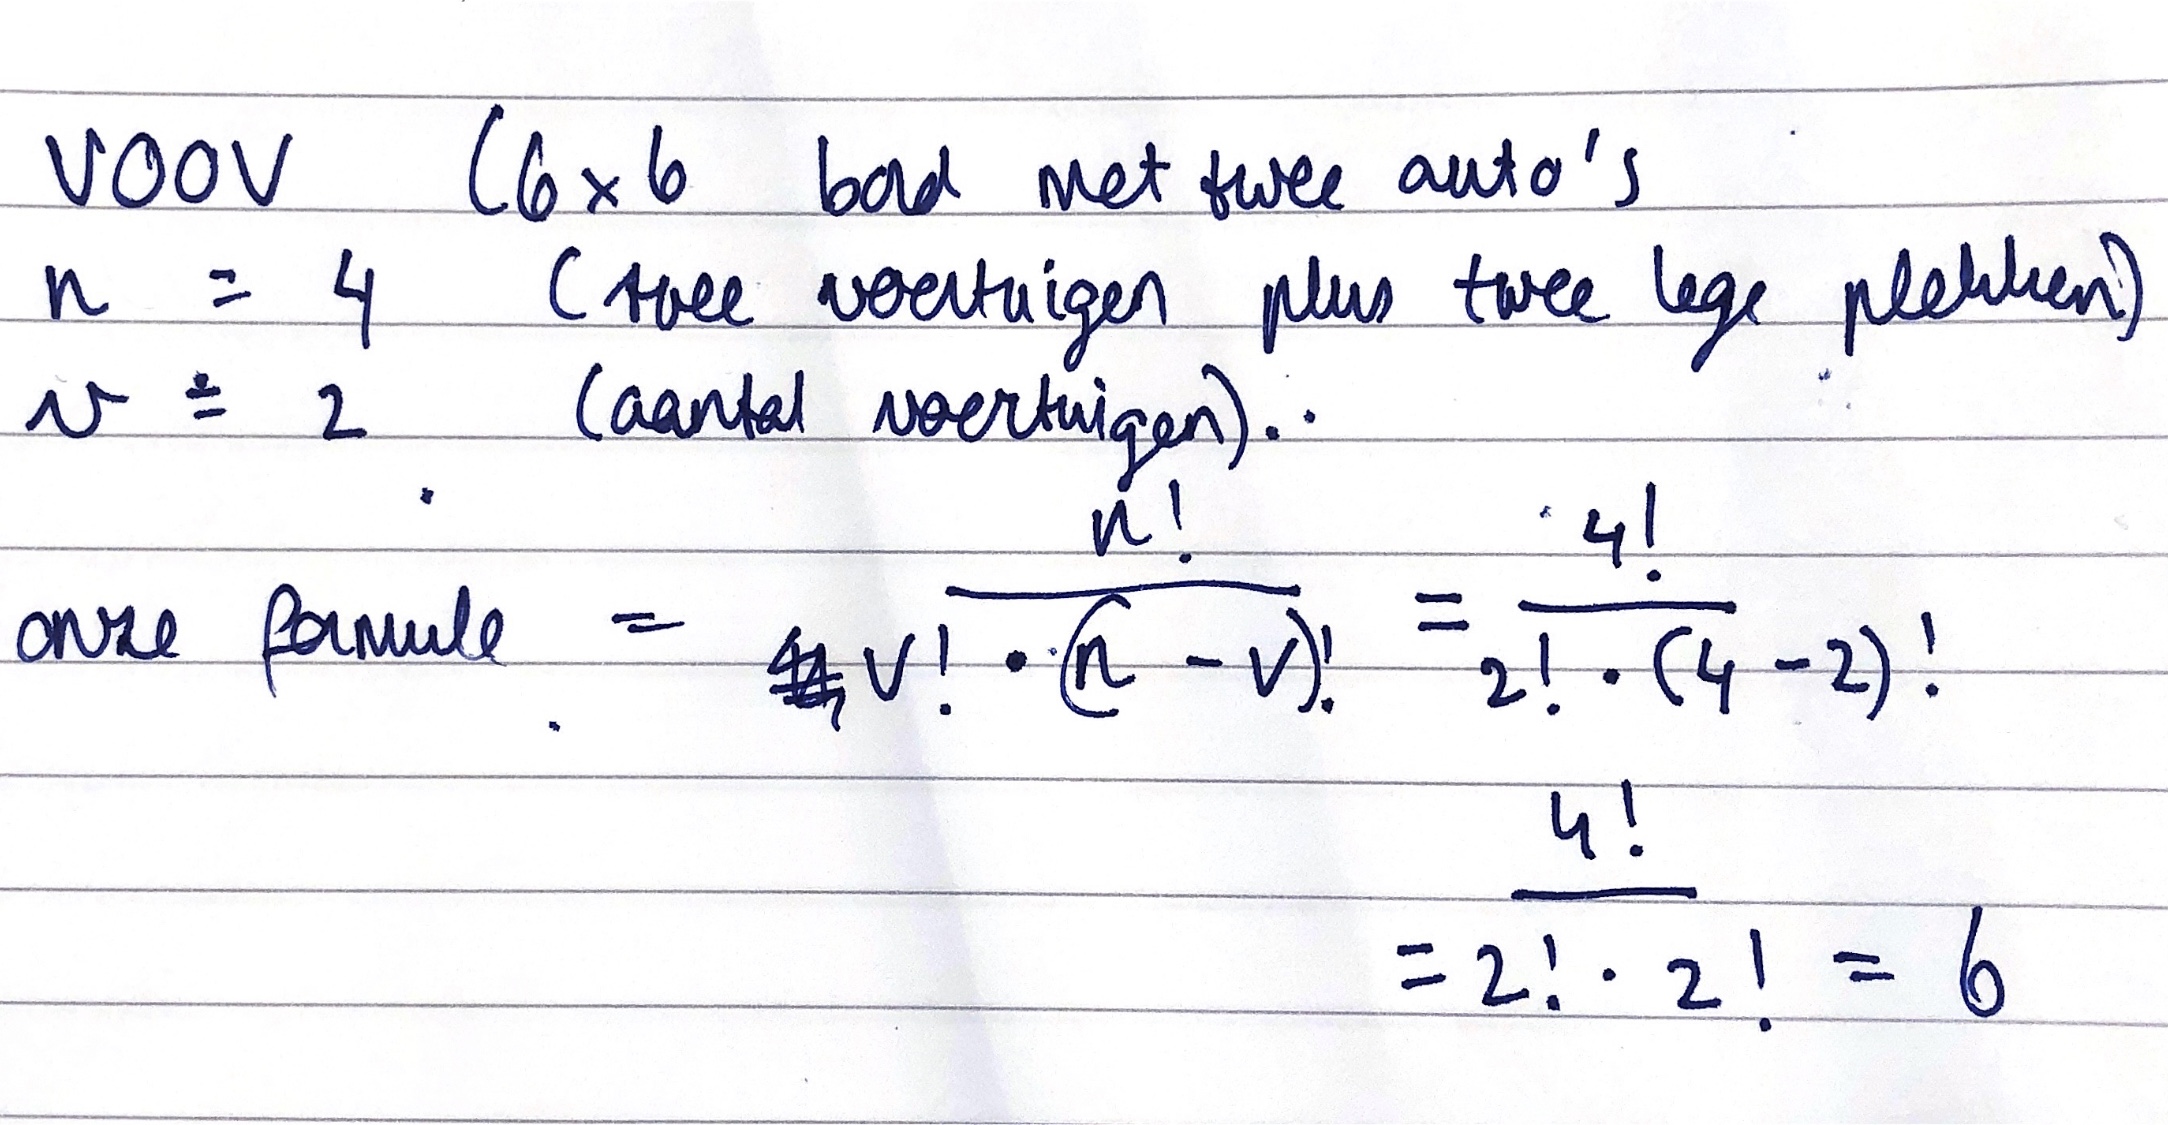 VOOV (6x6 bord met twee auto's
n = 4 (twee voertuigen plus twee lege plekken)
v = 2 (aantal voertuigen)..
onze formule = n! / v! · (n - v)! = 4! / 2! · (4 - 2)!
= 4! / 2! · 2! = 6